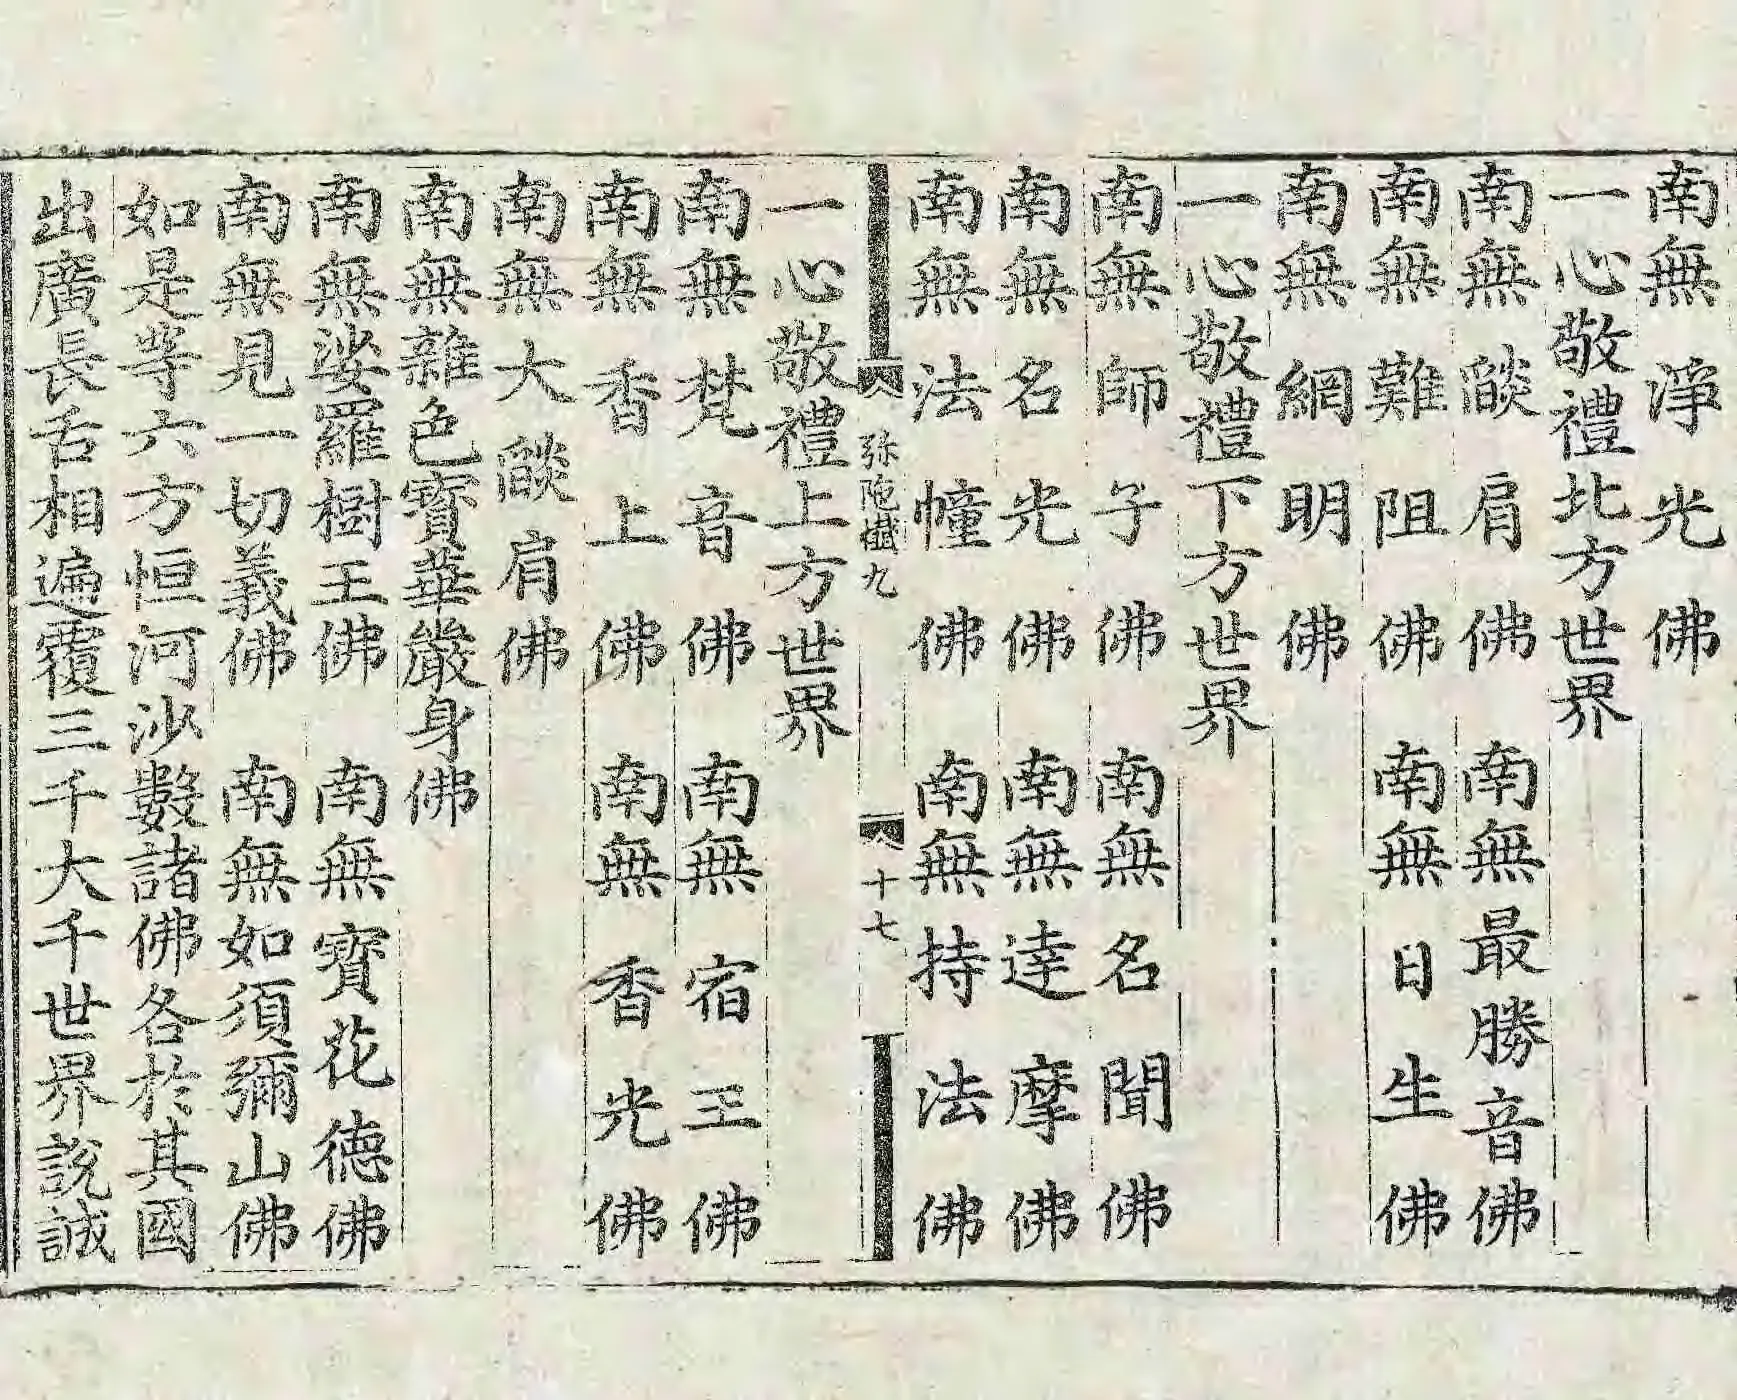 南無淨光佛
一心敬禮北方世界
南無燄肩佛 南無最勝音佛
南無難阻佛 南無日生佛
南無網明佛
一心敬禮下方世界
南無師子佛 南無名聞佛
南無名光佛 南無達摩佛
南無法幢佛 南無持法佛
弥陁懴九 十七
一心敬禮上方世界
南無梵音佛 南無宿王佛
南無香上佛 南無香光佛
南無大燄肩佛
南無雜色寶華嚴身佛
南無娑羅樹王佛 南無寶花德佛
南無見一切義佛 南無如須彌山佛
如是等六方恒河沙數諸佛各於其國
出廣長舌相遍覆三千大千世界說誠